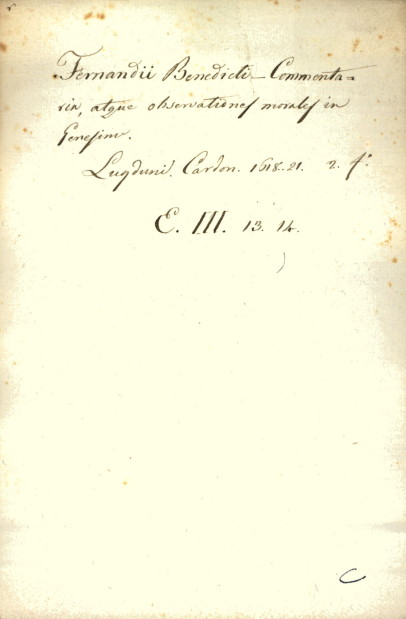 Fernandii Benedicti - Commenta=
ria, atque observationes morales in
Genesim.
Lugduni. Cardon. 1618-21. 2. f.º
E. III. 13. 14.
C